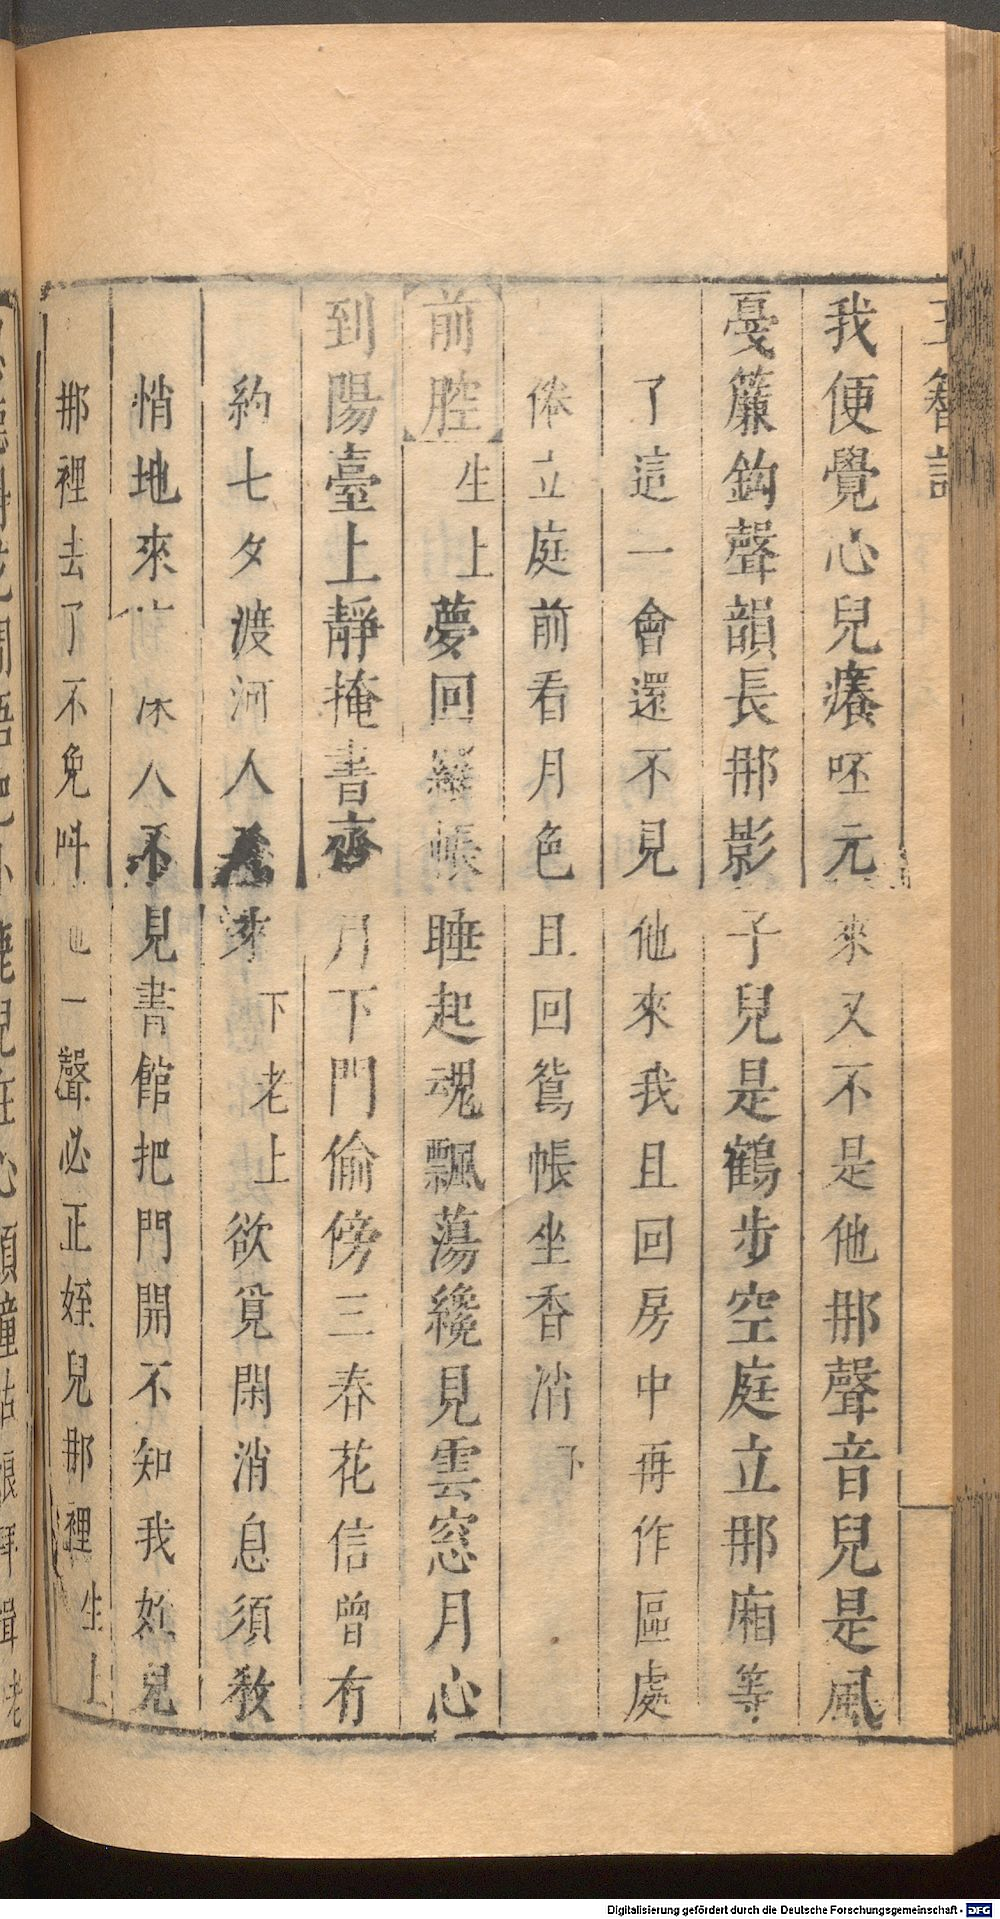 玉簪記
我便覺心兒癢呸元來又不是他那聲音兒是風
戞簾鈎聲韻長那影子兒是鶴步空庭立那廂等
了這一會還不見他來我且回房中再作區處
倦立庭前看月色且回鴛帳坐香消下
前腔生上夢回羅帳睡起魂飄蕩纔見雲窓月心
到陽臺上靜掩書齋月下門偷傍三春花信曾有
約七夕渡河人來下老上欲覓閑消息須教
悄地來床人不見書館把門開不知我姪兒
那裡去了不免呌他一聲必正姪兒那裡生上
Digitalisierung gefördert durch die Deutsche Forschungsgemeinschaft - DFG